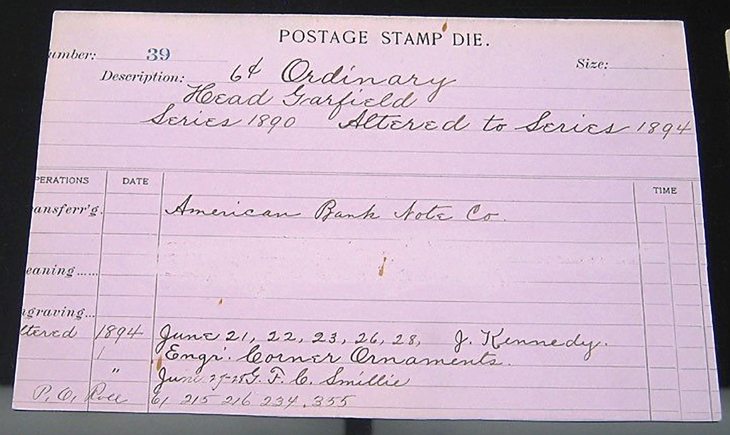 POSTAGE STAMP DIE.
umber: 39 Size:
Description: 6¢ Ordinary
Head Garfield
Series 1890 Altered to Series 1894
PERATIONS DATE TIME
ansferr'g. American Bank Note Co.
eaning......
graving....
ltered 1894 June 21, 22, 23, 26, 28, J. Kennedy.
Engr. Corner Ornaments.
" June G. F. C. Smillie
P. O. Roll 61 215 216 234 .355